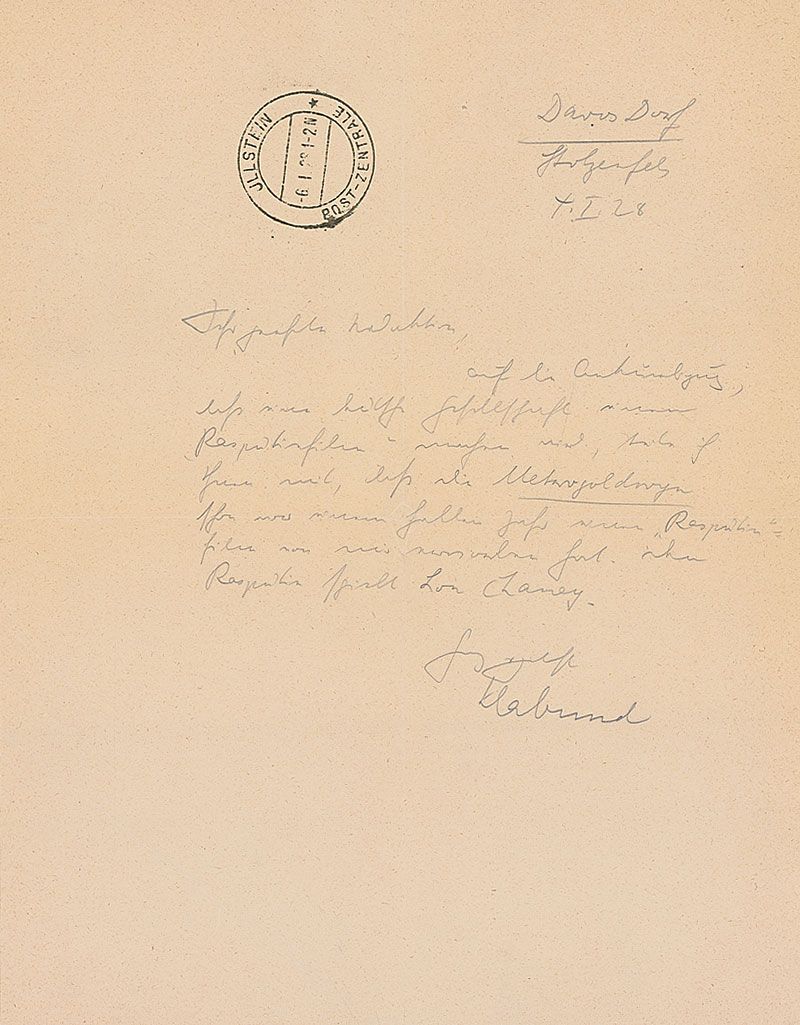 ULLSTEIN
POST-ZENTRALE
-6.1.28 1-2N
Davos Dorf
Stolzenfels
4.I.28
Sehr geehrte Redaktion,
auf die Ankündigung,
daß eine Gesellschaft einen
Rasputinfilm machen wird, teile ich
Ihnen mit, daß die Metrogoldwyn
schon vor einem halben Jahr einen „Rasputin"-
film von mir erworben hat. Den
Rasputin spielt Lon Chaney.
Klabund